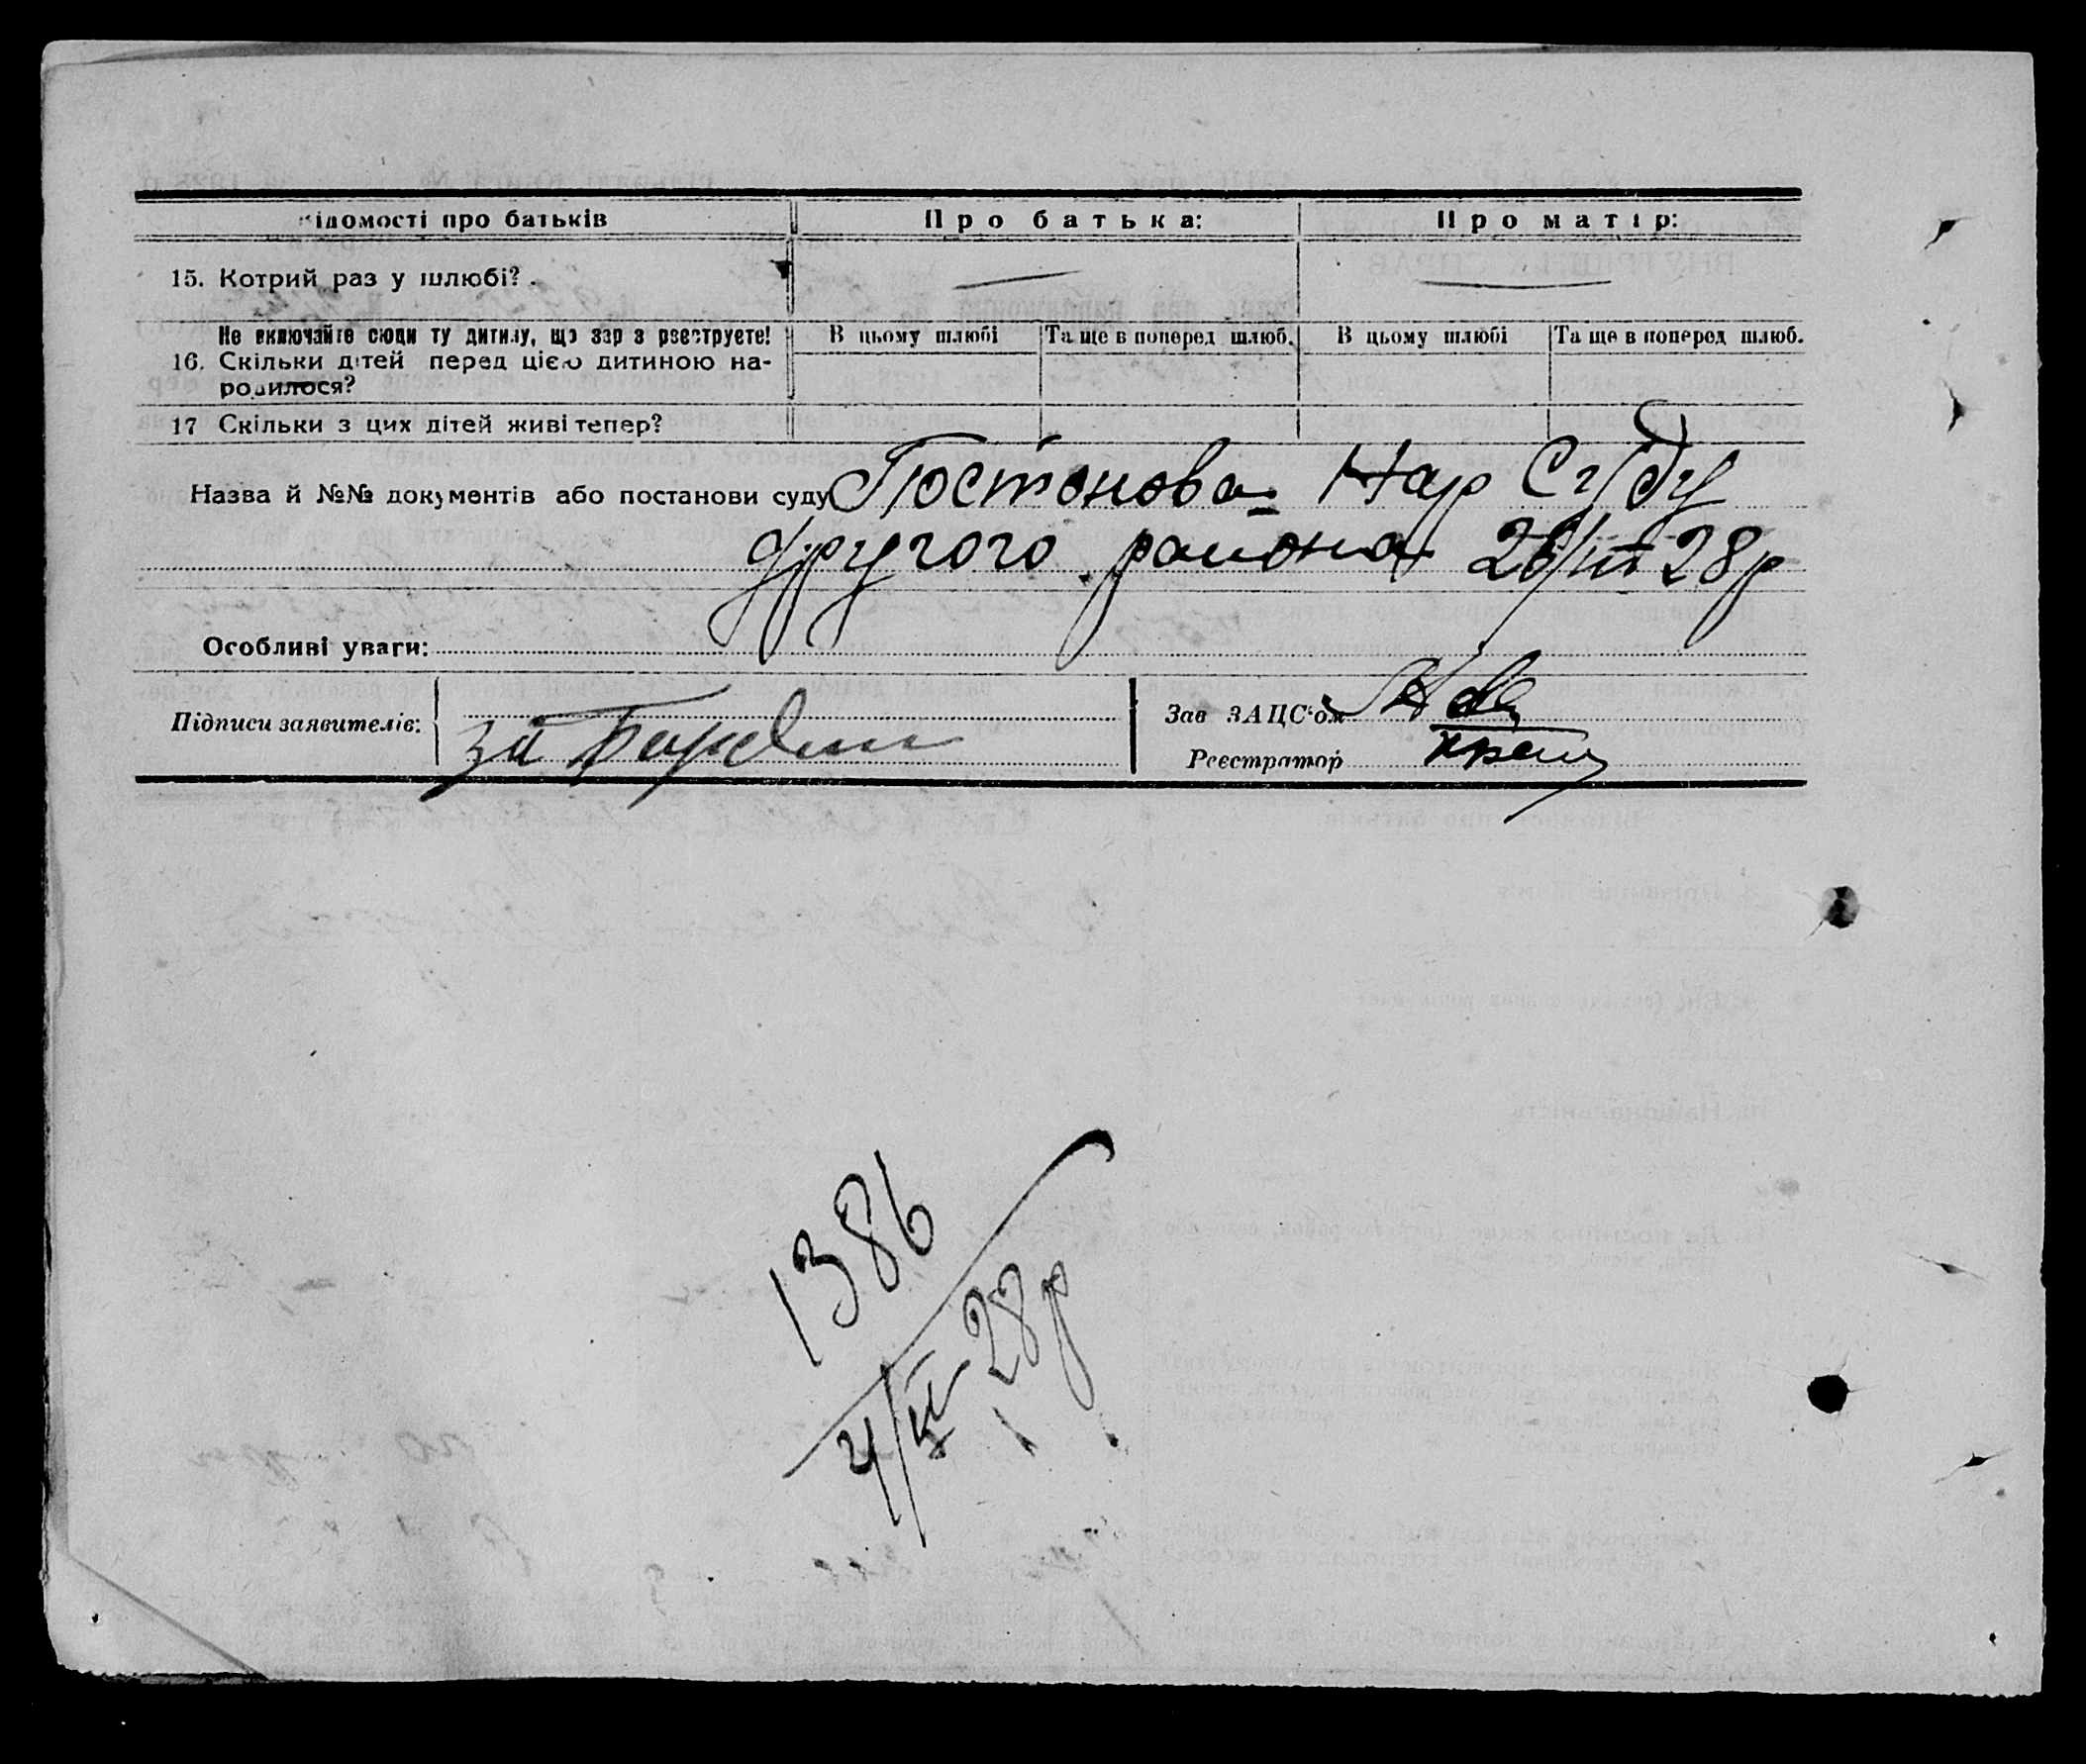 Відомості про батьків Про батька: Про матір:
15. Котрий раз у шлюбі? — —
Не включайте сюди ту дитину, що зараз реєструєте! В цьому шлюбі Та ще в поперед шлюб. В цьому шлюбі Та ще в поперед шлюб.
16. Скільки дітей перед цією дитиною на-
родилося?
17 Скільки з цих дітей живі тепер?
Назва й №№ документів або постанови суду Постонова Нар Суду
другого района 26/III 28р
Особливі уваги:
Підписи заявителів: за
Зав ЗАЦС'ом
Реєстратор
1386
4/IV 28р